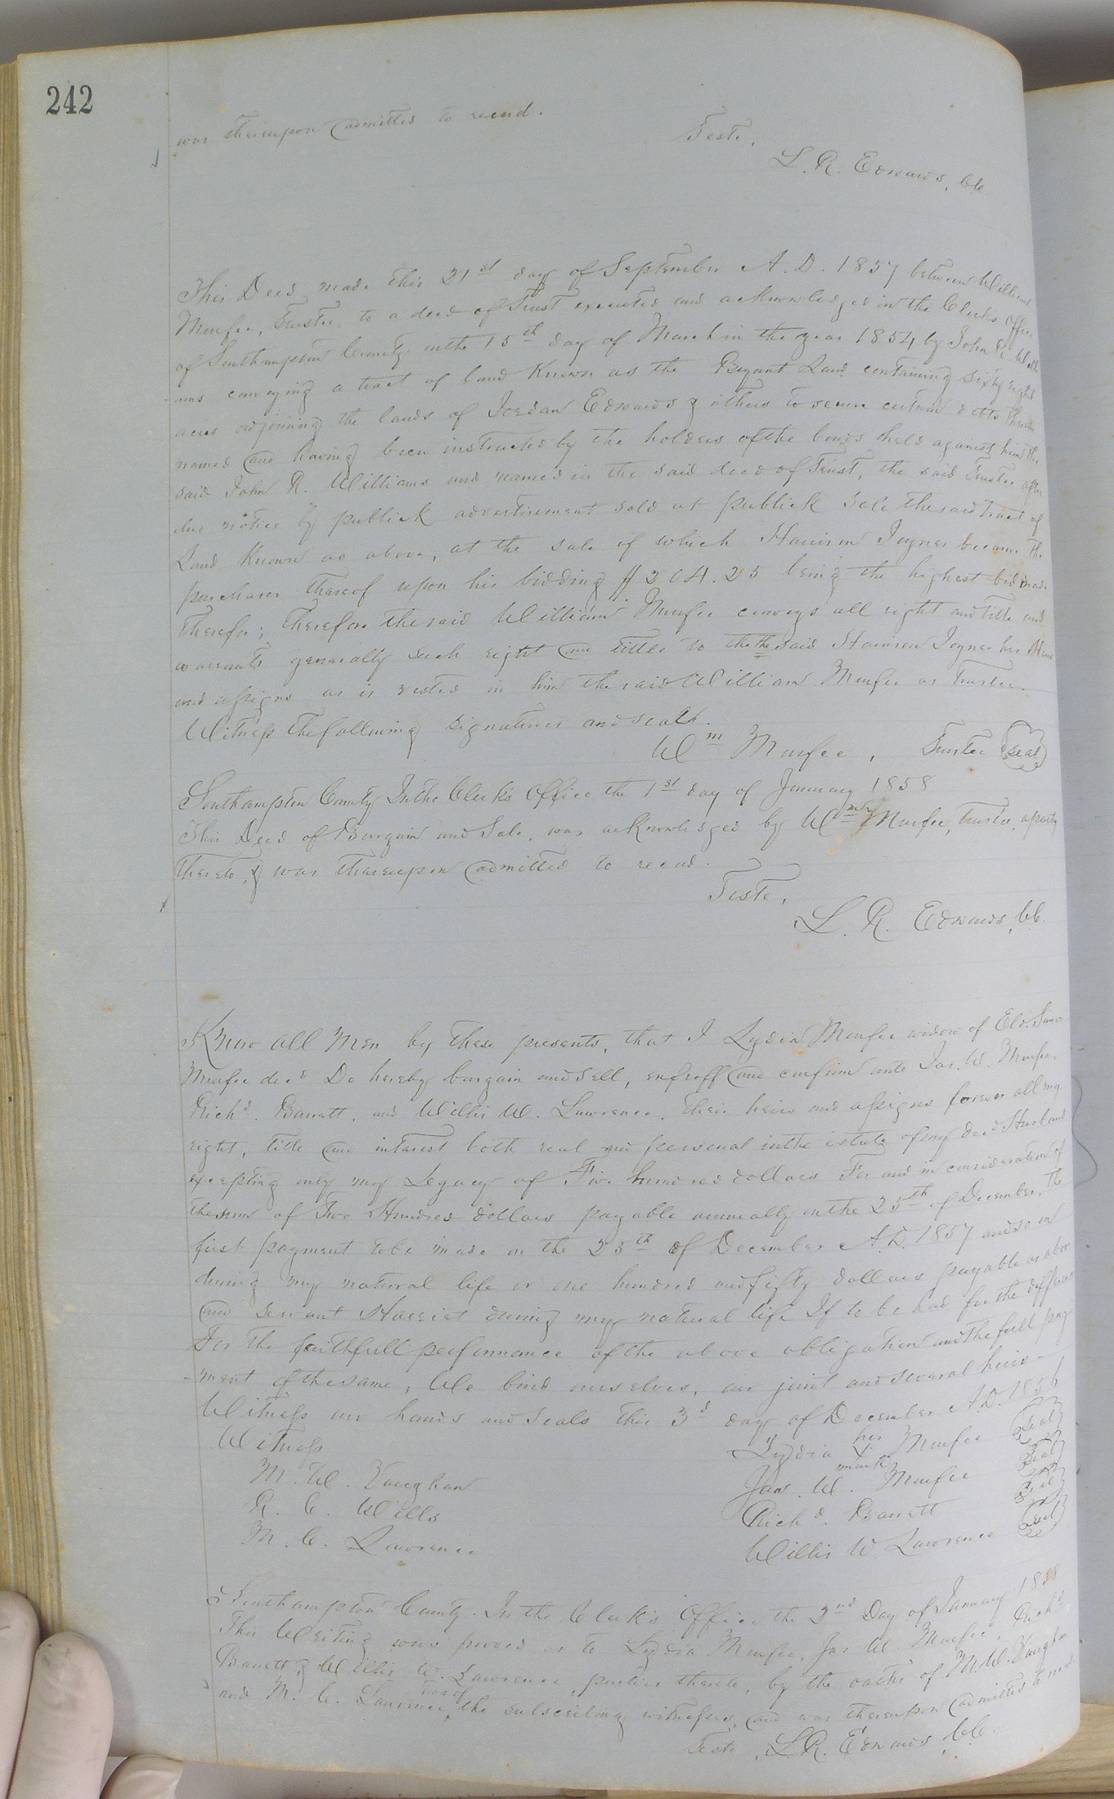 242
was thereupon admitted to record.
Teste,
L. R. Edwards, CC
This Deed made this 21st day of September A. D. 1857 between William
Murfee, Trustee, to a deed of Trust executed and acknowledged in the Clerks Office
of Southampton County on the 15th day of March in the year 1854 by John R. Willi
ams conveying a tract of land Known as the Bryant Land containing sixty eight
acres adjoining the lands of Jordan Edwards & others to secure certain debts therein
named and having been instructed by the holders of the bonds held against him the
said John R. Williams and named in the said deed of Trust, the said Trustee after
due notice by publick advertisement sold at publick sale the said tract of
Land Known as above, at the sale of which Harrison Joyner became the
purchaser thereof upon his bidding $204.25 being the highest bid made
therefor; therefore the said William Murfee conveys all right and title and
warrants generally such right and title to the the said Harrison Joyner his
and assigns as is vested in him the said William Murfee as Trustee.
Witness the following signatures and seals.
Wm Murfee, Trustee seal
Southampton County In the Clerk's Office the 1st day of January 1858
This Deed of Bargain and Sale, was acknowledged by Wm Murfee, Trustee, a party
thereto, & was thereupon admitted to record.
Teste,
L. R. Edwards, CC.
Know all Men by these presents, that I Lydia Murfee widow of
Murfee decd Do hereby bargain and sell, enfeoff and confirm unto Jas. W. Murfee
Richd. Barrett, and Willis W. Lawrence, their heirs and assigns forever all my
right, title and interest both real and personal in the estate of my decd Husband
excepting only my Legacy of Five hundred dollars For and in consideration of
the sum of Two Hundred dollars payable annually on the 25th of December, the
first payment to be made on the 25th of December A.D. 1857 and so on
during my natural life or one hundred and fifty dollars payable as above
and servant Harriet during my natural life If to be had for the difference
For the faithfull performance of the above obligation and the full pay
-ment of the same, We bind ourselves, our joint and several heirs
Witness our hands and seals this 3d day of December A.D. 1856
Witness
Lydia her X mark Murfee Seal
M. W. Vaughan
Jas. W. Murfee Seal
R. C. Wills
Richd. Barrett Seal
M. C. Lawrence
Willis W Lawrence Seal
Southampton County. In the Clerk's Office the 2nd Day of January 1858
This Writing was proved as to Lydia Murfee, Jas W. Murfee, Richd.
Barrett & Willis W. Lawrence, parties thereto, by the oaths of M. W. Vaughan
and M. C. Lawrence, two of the subscribing witnesses, and was thereupon admitted to record
Teste, L. R. Edwards, CC.